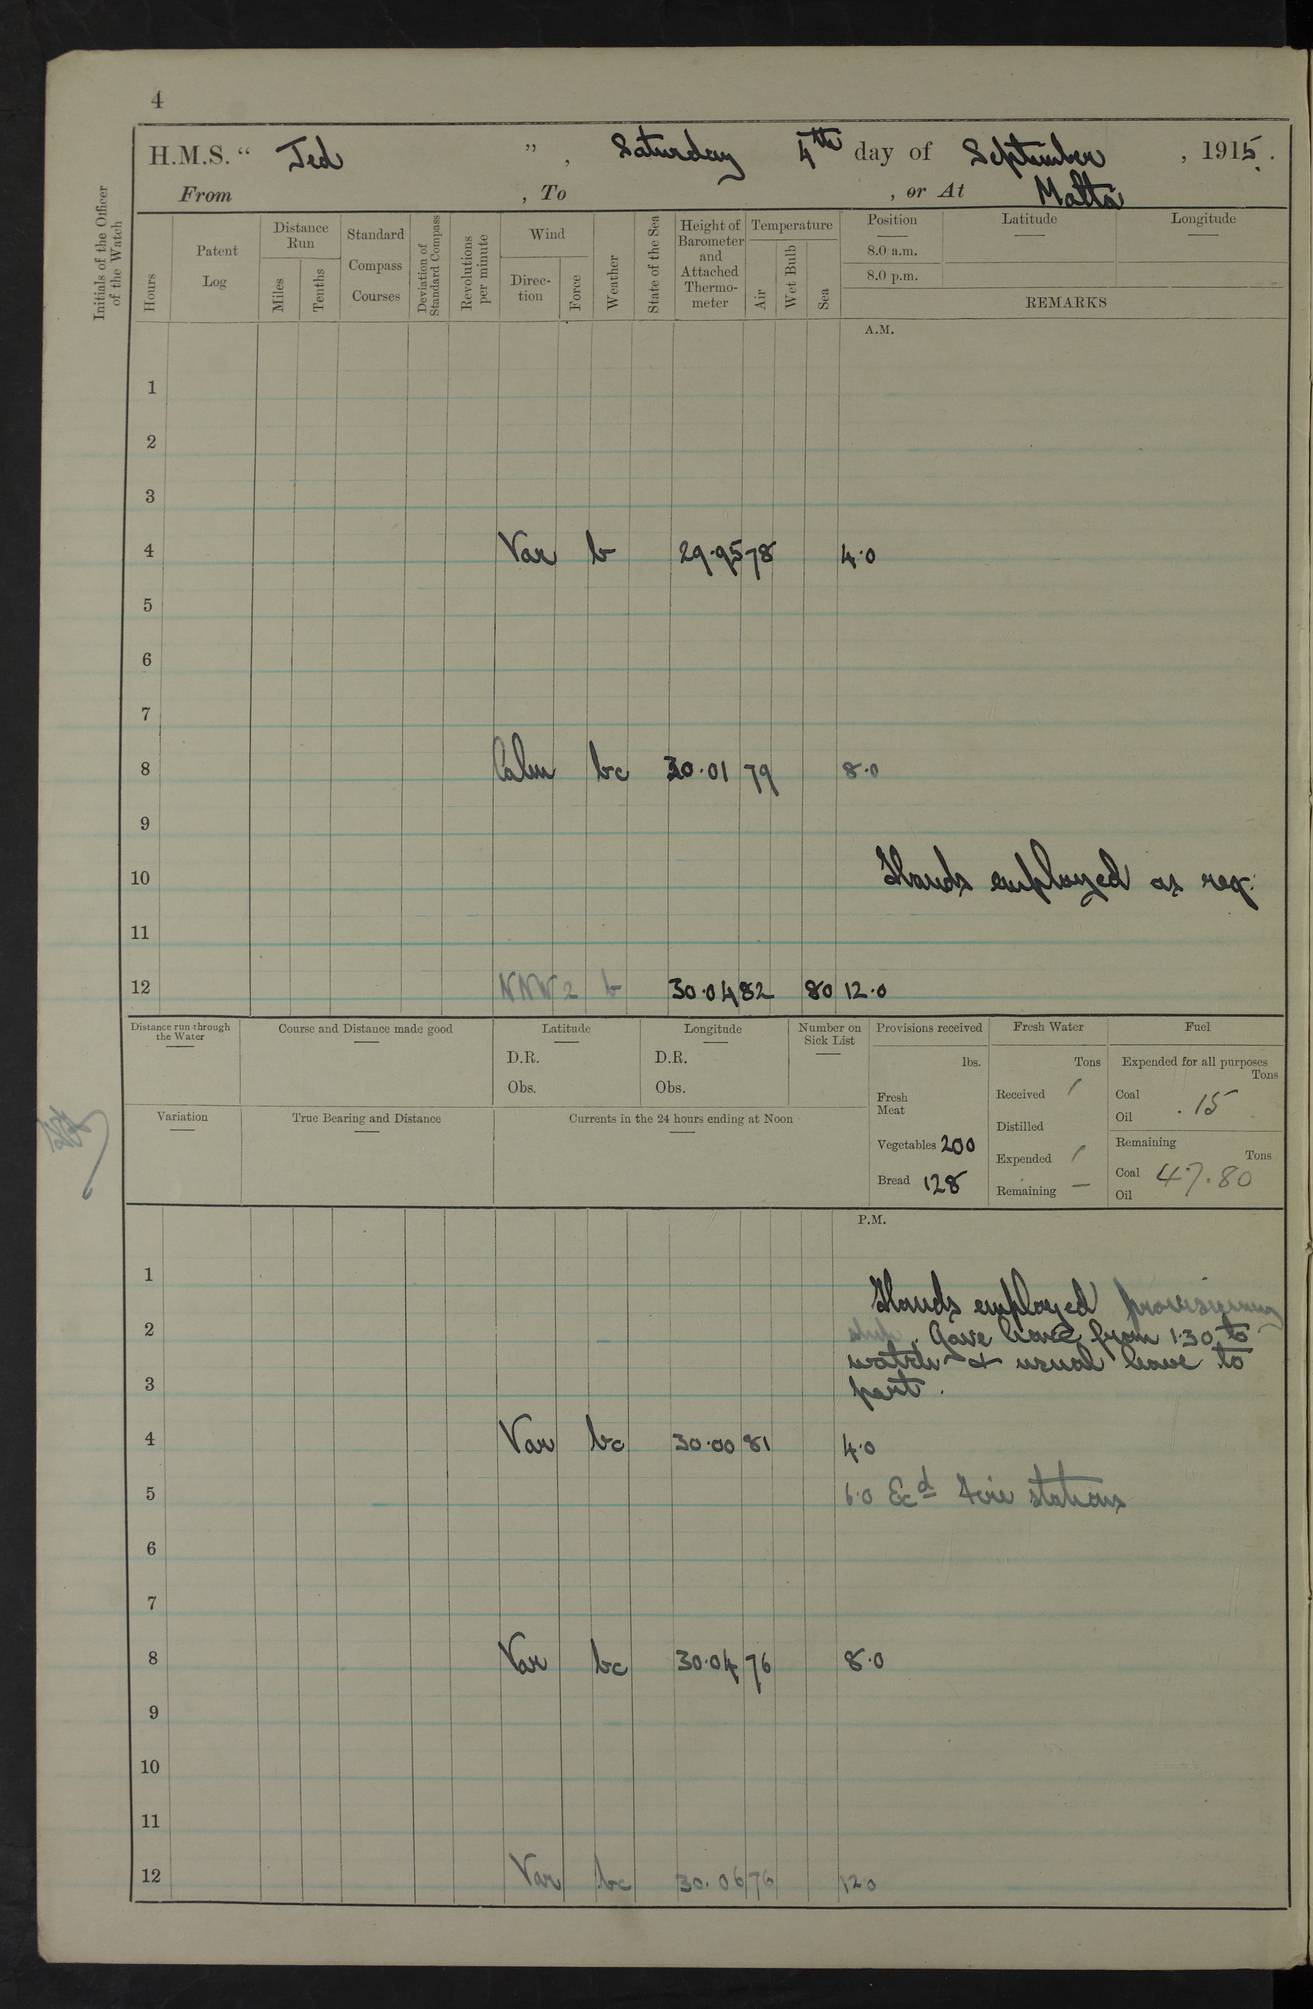 4
H.M.S. “ Jed ” , Saturday 4th day of September , 1915 .
From , To , or At Malta
Initials of the Officer of the Watch
Hours
Patent Log
Distance Run
Miles
Tenths
Standard Compass Courses
Deviation of Standard Compass
Revolutions per minute
Wind
Direc- tion
Force
Weather
State of the Sea
Height of Barometer and Attached Thermo- meter
Temperature
Air
Wet Bulb
Sea
Position
Latitude
Longitude
8.0 a.m.
8.0 p.m.
REMARKS
A.M.
1
2
3
4 Var b 29.95 78 4.0
5
6
7
8 Calm bc 30.01 79 8.0
9
10 Hands employed as req.
11
12 NNW 2 b 30.04 82 80 12.0
Distance run through the Water
Course and Distance made good
Latitude
D.R.
Obs.
Longitude
D.R.
Obs.
Number on Sick List
Provisions received
lbs.
Fresh Meat
Vegetables 200
Bread 128
Fresh Water
Tons
Received /
Distilled
Expended /
Remaining —
Fuel
Expended for all purposes
Tons
Coal
Oil .15
Remaining
Tons
Coal 47.80
Oil
Variation
True Bearing and Distance
Currents in the 24 hours ending at Noon
P.M.
1
Hands employed provisioning
2 ship. Gave leave from 1.30 to
watch & usual leave to
3 part.
4 Var bc 30.00 81 4.0
5 6.0 Exd Fire stations
6
7
8 Var bc 30.04 76 8.0
9
10
11
12 Var bc 30.06 76 12.0